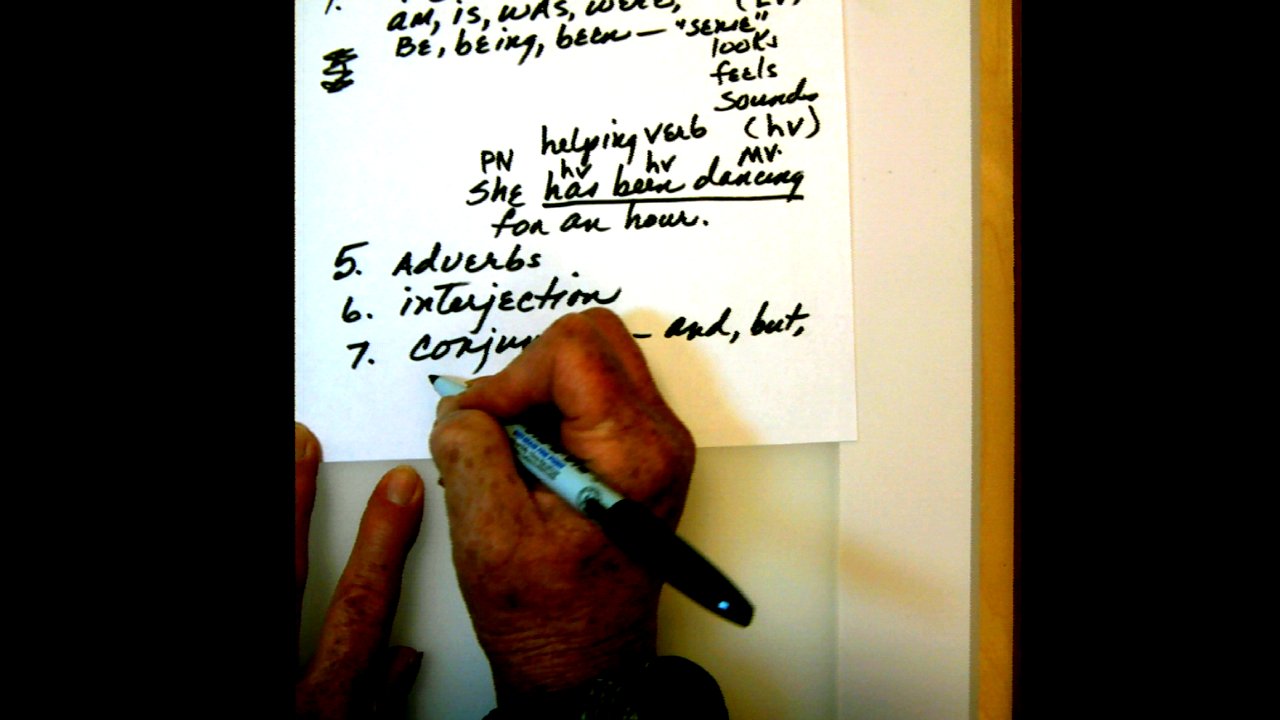 am, is, was, were,
BE, being, been — "sense"
looks
feels
sounds
helping verb (hv)
PN hv hv mv.
She has been dancing
for an hour.
5. Adverbs
6. interjection
7. — and, but,